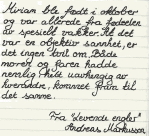 Miriam ble født i oktober
og var allerede fra fødselen
av spesielt vakker. At det
var en objektiv sannhet, er
det ingen tvil om. Både
moren og faren hadde
nemlig hilst uavhengig av
hverandre, kommet fram til
det samme.
Fra "Levende engler"
Andreas Markusson